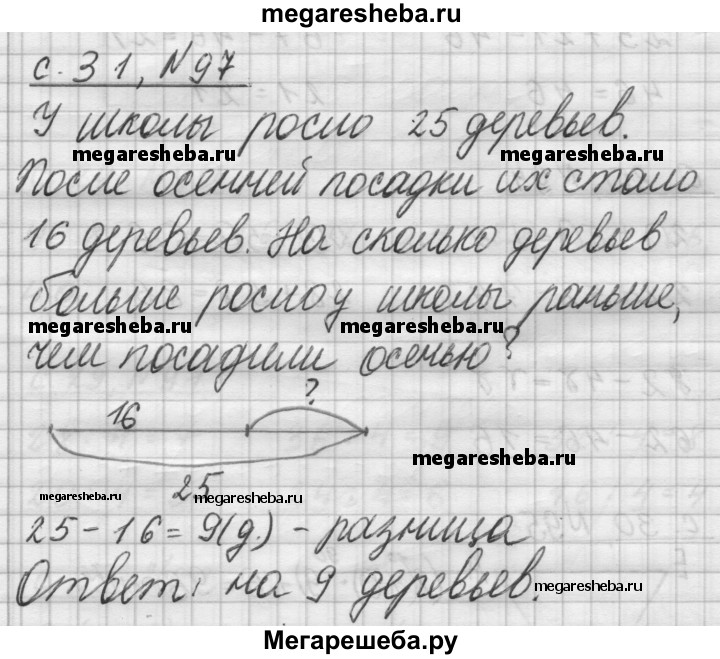 megaresheba.ru
с. 31, №97
У школы росло 25 деревьев.
megaresheba.ru megaresheba.ru
После осенней посадки их стало
16 деревьев. На сколько деревьев
больше росло у школы раньше,
megaresheba.ru megaresheba.ru
чем посадили осенью?
16 ?
megaresheba.ru
25
megaresheba.ru megaresheba.ru
25-16=9(д.) - разница
Ответ: на 9 деревьев.
megaresheba.ru
Мегарешеба.ру